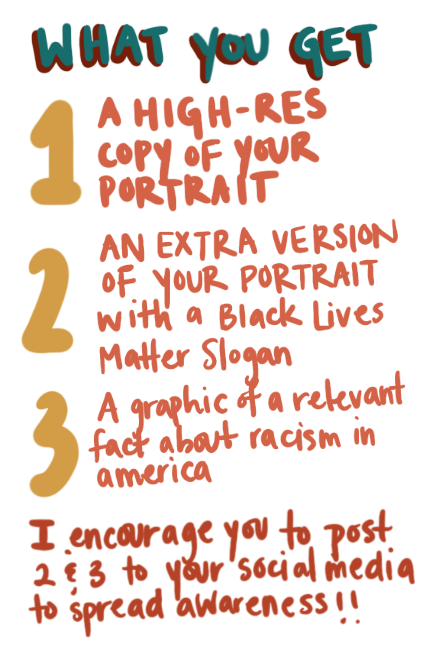 WHAT YOU GET
1 A HIGH-RES
COPY OF YOUR
PORTRAIT
2 AN EXTRA VERSION
OF YOUR PORTRAIT
with a Black Lives
Matter Slogan
3 A graphic of a relevant
fact about racism in
america
I encourage you to post
2 & 3 to your social media
to spread awareness!!